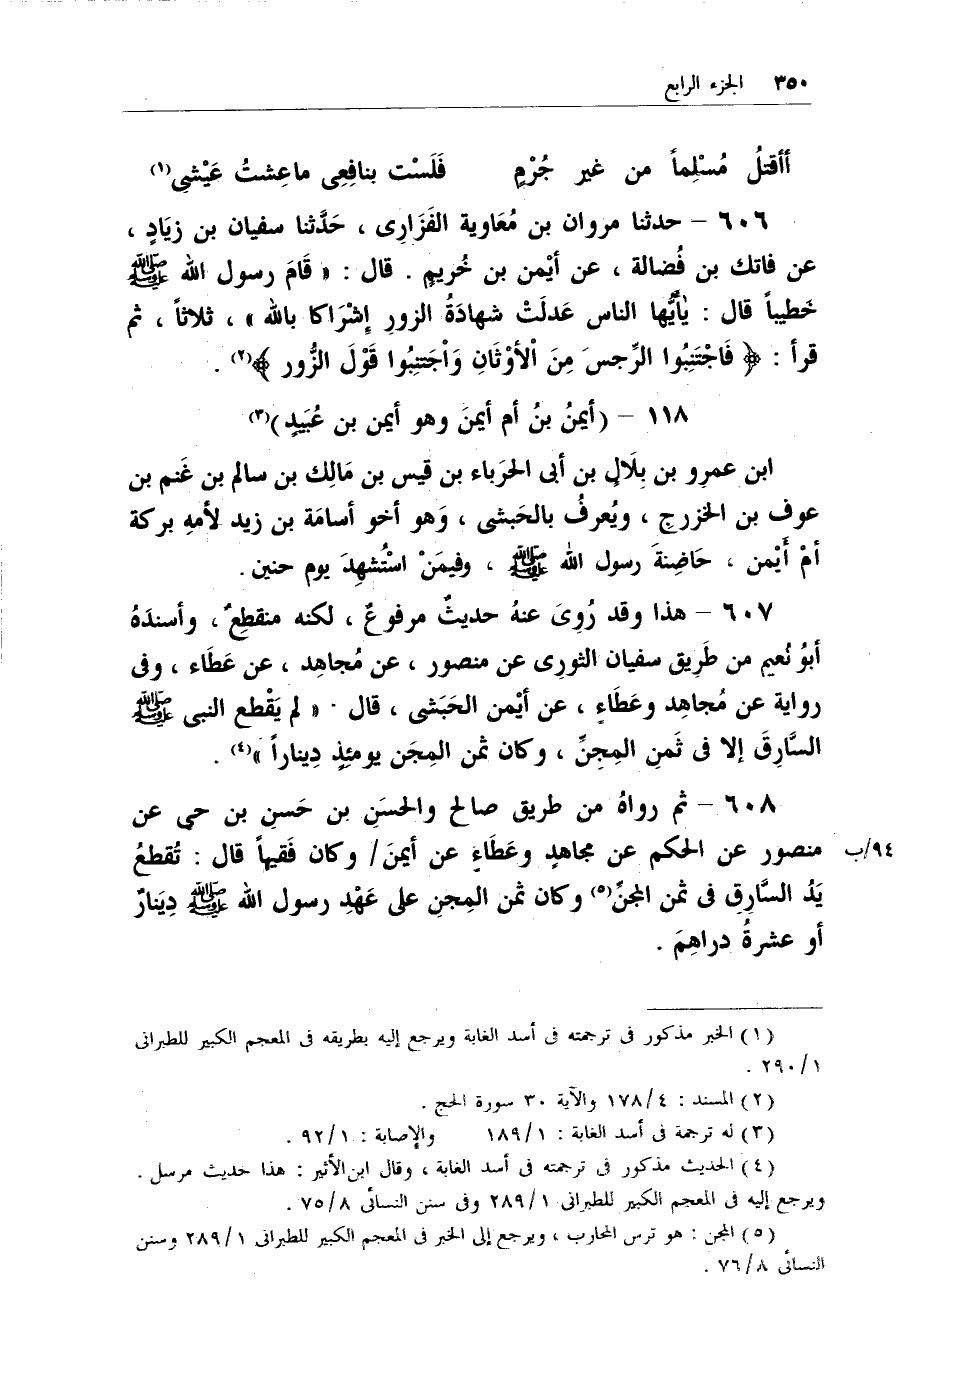 ٣٥٠ الجزء الرابع
أأقتلُ مُسْلِماً من غير جُرْمٍ فَلَسْت بنافِعِى ماعِشتُ عَيْشى(١)
٦٠٦ – حدثنا مروان بن مُعَاوية الفَزَارِى ، حَدَّثنا سفيان بن زيَادٍ ،
عن فاتك بن فُضالة ، عن أيْمن بن خُريمٍ . قال : « قَامَ رسول الله ﷺ
خَطيباً قال : يٰأَيُّها الناس عَدلَتْ شهادَةُ الزورِ إشْرَاكا بالله » ، ثلاثاً ، ثم
قرأ : ﴿ فَاجْتَنِبُوا الرِّجسَ مِنَ اْلأوْثَانِ وَاْجَتنِبُوا قَوْلَ الزُّور ﴾(٢) .
١١٨ – (أيمنُ بنُ أم أيمنَ وهو أيمن بن عُبَيدٍ)(٣)
ابن عمرِو بن بِلَالٍ بن أبى الحرَباء بن قيس بن مَالِك بن سالم بن غَنم بن
عوف بن الخزرجِ ، ويُعرفُ بالحَبشى ، وَهو أخو أسامَة بن زيد لأمهِ بركة
أمْ أَيْمن ، حَاضِنةَ رسول الله ﷺ ، وفيمَنْ اسْتُشهِدَ يوم حنين .
٦٠٧ – هذا وقد رُوِىَ عنهُ حديثٌ مرفوعٌ ، لكنه منقطِعٌ ، وأسندَهُ
أبوُ نُعيم من طَرِيق سفيان الثورِى عن منصور ، عن مُجاهِد ، عن عَطَاء ، وفى
رواية عن مُجاهِد وعَطَاءٍ ، عن أيْمن الحَبَشى ، قال · « لم يَقْطع النبى ﷺ
السَّارِقَ إلا فى ثَمنِ المِجنِّ ، وكان ثمن المِجَن يومئِذٍ دِيناراً »(٤) .
٦٠٨ – ثم رواهُ من طريق صالح والحسَنِ بن حَسنِ بن حى عن
منصور عن الحكم عن مجاهدٍ وعَطَاءَ عن أيمنَ/ وكان فَقيهاً قال : تُقطعُ ٩٤/ب
يَدُ السَّارِقِ فى ثمن المجنِّ(٥) وكان ثمن المِجنِ على عَهْدِ رسول الله ﷺ دِيَنارٌ
أو عشرةُ دراهِمَ .
(١) الخبر مذكور فى ترجمته فى أسد الغابة ويرجع إليه بطريقه فى المعجم الكبير للطبرانى
٢٩٠/١ .
(٢) المسند : ١٧٨/٤ والآية ٣٠ سورة الحج .
(٣) له ترجمة فى أسد الغابة : ١٨٩/١ والإصابة : ٩٢/١ .
(٤) الحديث مذكور فى ترجمته فى أسد الغابة ، وقال ابن الأثير : هذا حديث مرسل .
ويرجع إليه فى المعجم الكبير للطبرانى ٢٨٩/١ وفى سنن النسائى ٧٥/٨ .
(٥) المجن : هو ترس المحارب ، ويرجع إلى الخبر فى المعجم الكبير للطبرانى ٢٨٩/١ وسنن
النسائى ٧٦/٨ .